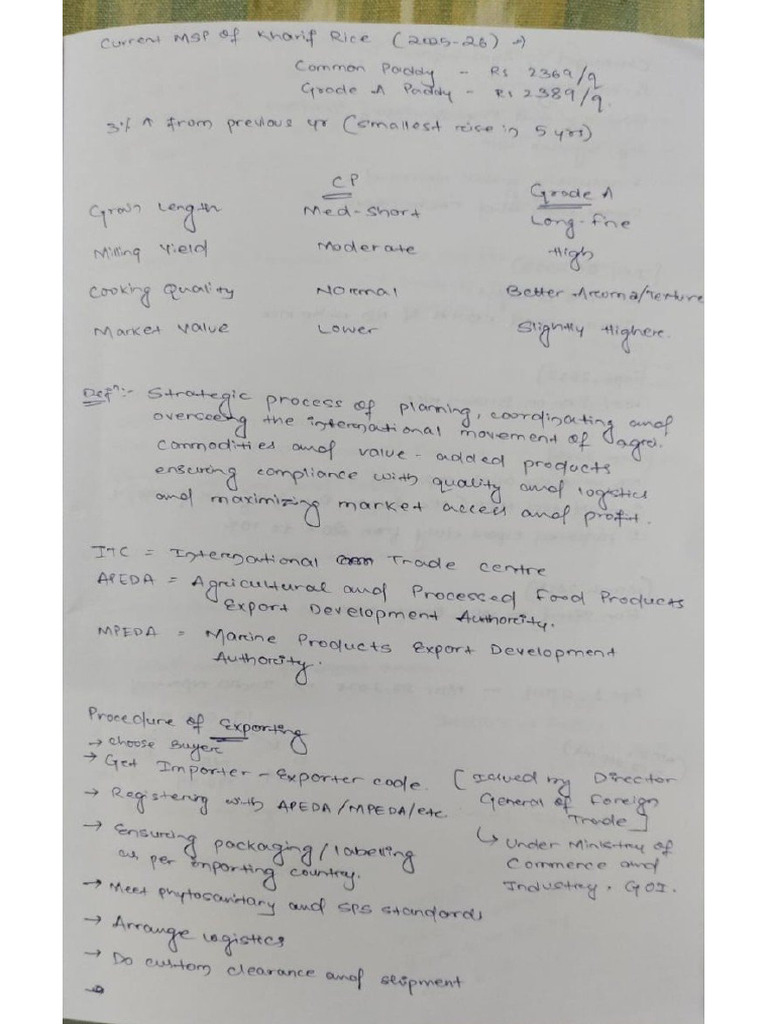 Current MSP of Kharif Rice (2025-26) →
Common Paddy - Rs 2369/q
Grade A Paddy - Rs 2389/q.
3% ↑ from previous yr (smallest rise in 5 yrs)
CP Grade A
Grain Length Med-Short Long-fne
Milling Yield Moderate High
Cooking Quality Normal Better Aroma/Texture
Market Value Lower Slightly Higher.
Defⁿ:- Strategic process of planning, coordinating and
overseeing the international movement of agri.
commodities and value-added products
ensuring compliance with quality and logistics
and maximizing market access and profit.
ITC = International Trade centre
APEDA = Agricultural and Processed Food Products
Export Development Authority.
MPEDA = Marine Products Export Development
Authority.
Procedure of Exporting
→ Choose Buyer
→ Get Importer-Exporter code. [Issued by Director
General of Foreign
Trade]
→ Registering with APEDA/MPEDA/etc.
↳ Under Ministry of
Commerce and
Industry, GOI.
→ Ensuring packaging/labelling
as per importing country.
→ Meet phytosanitary and SPS standards
→ Arrange logistics
→ Do custom clearance and shipment
→